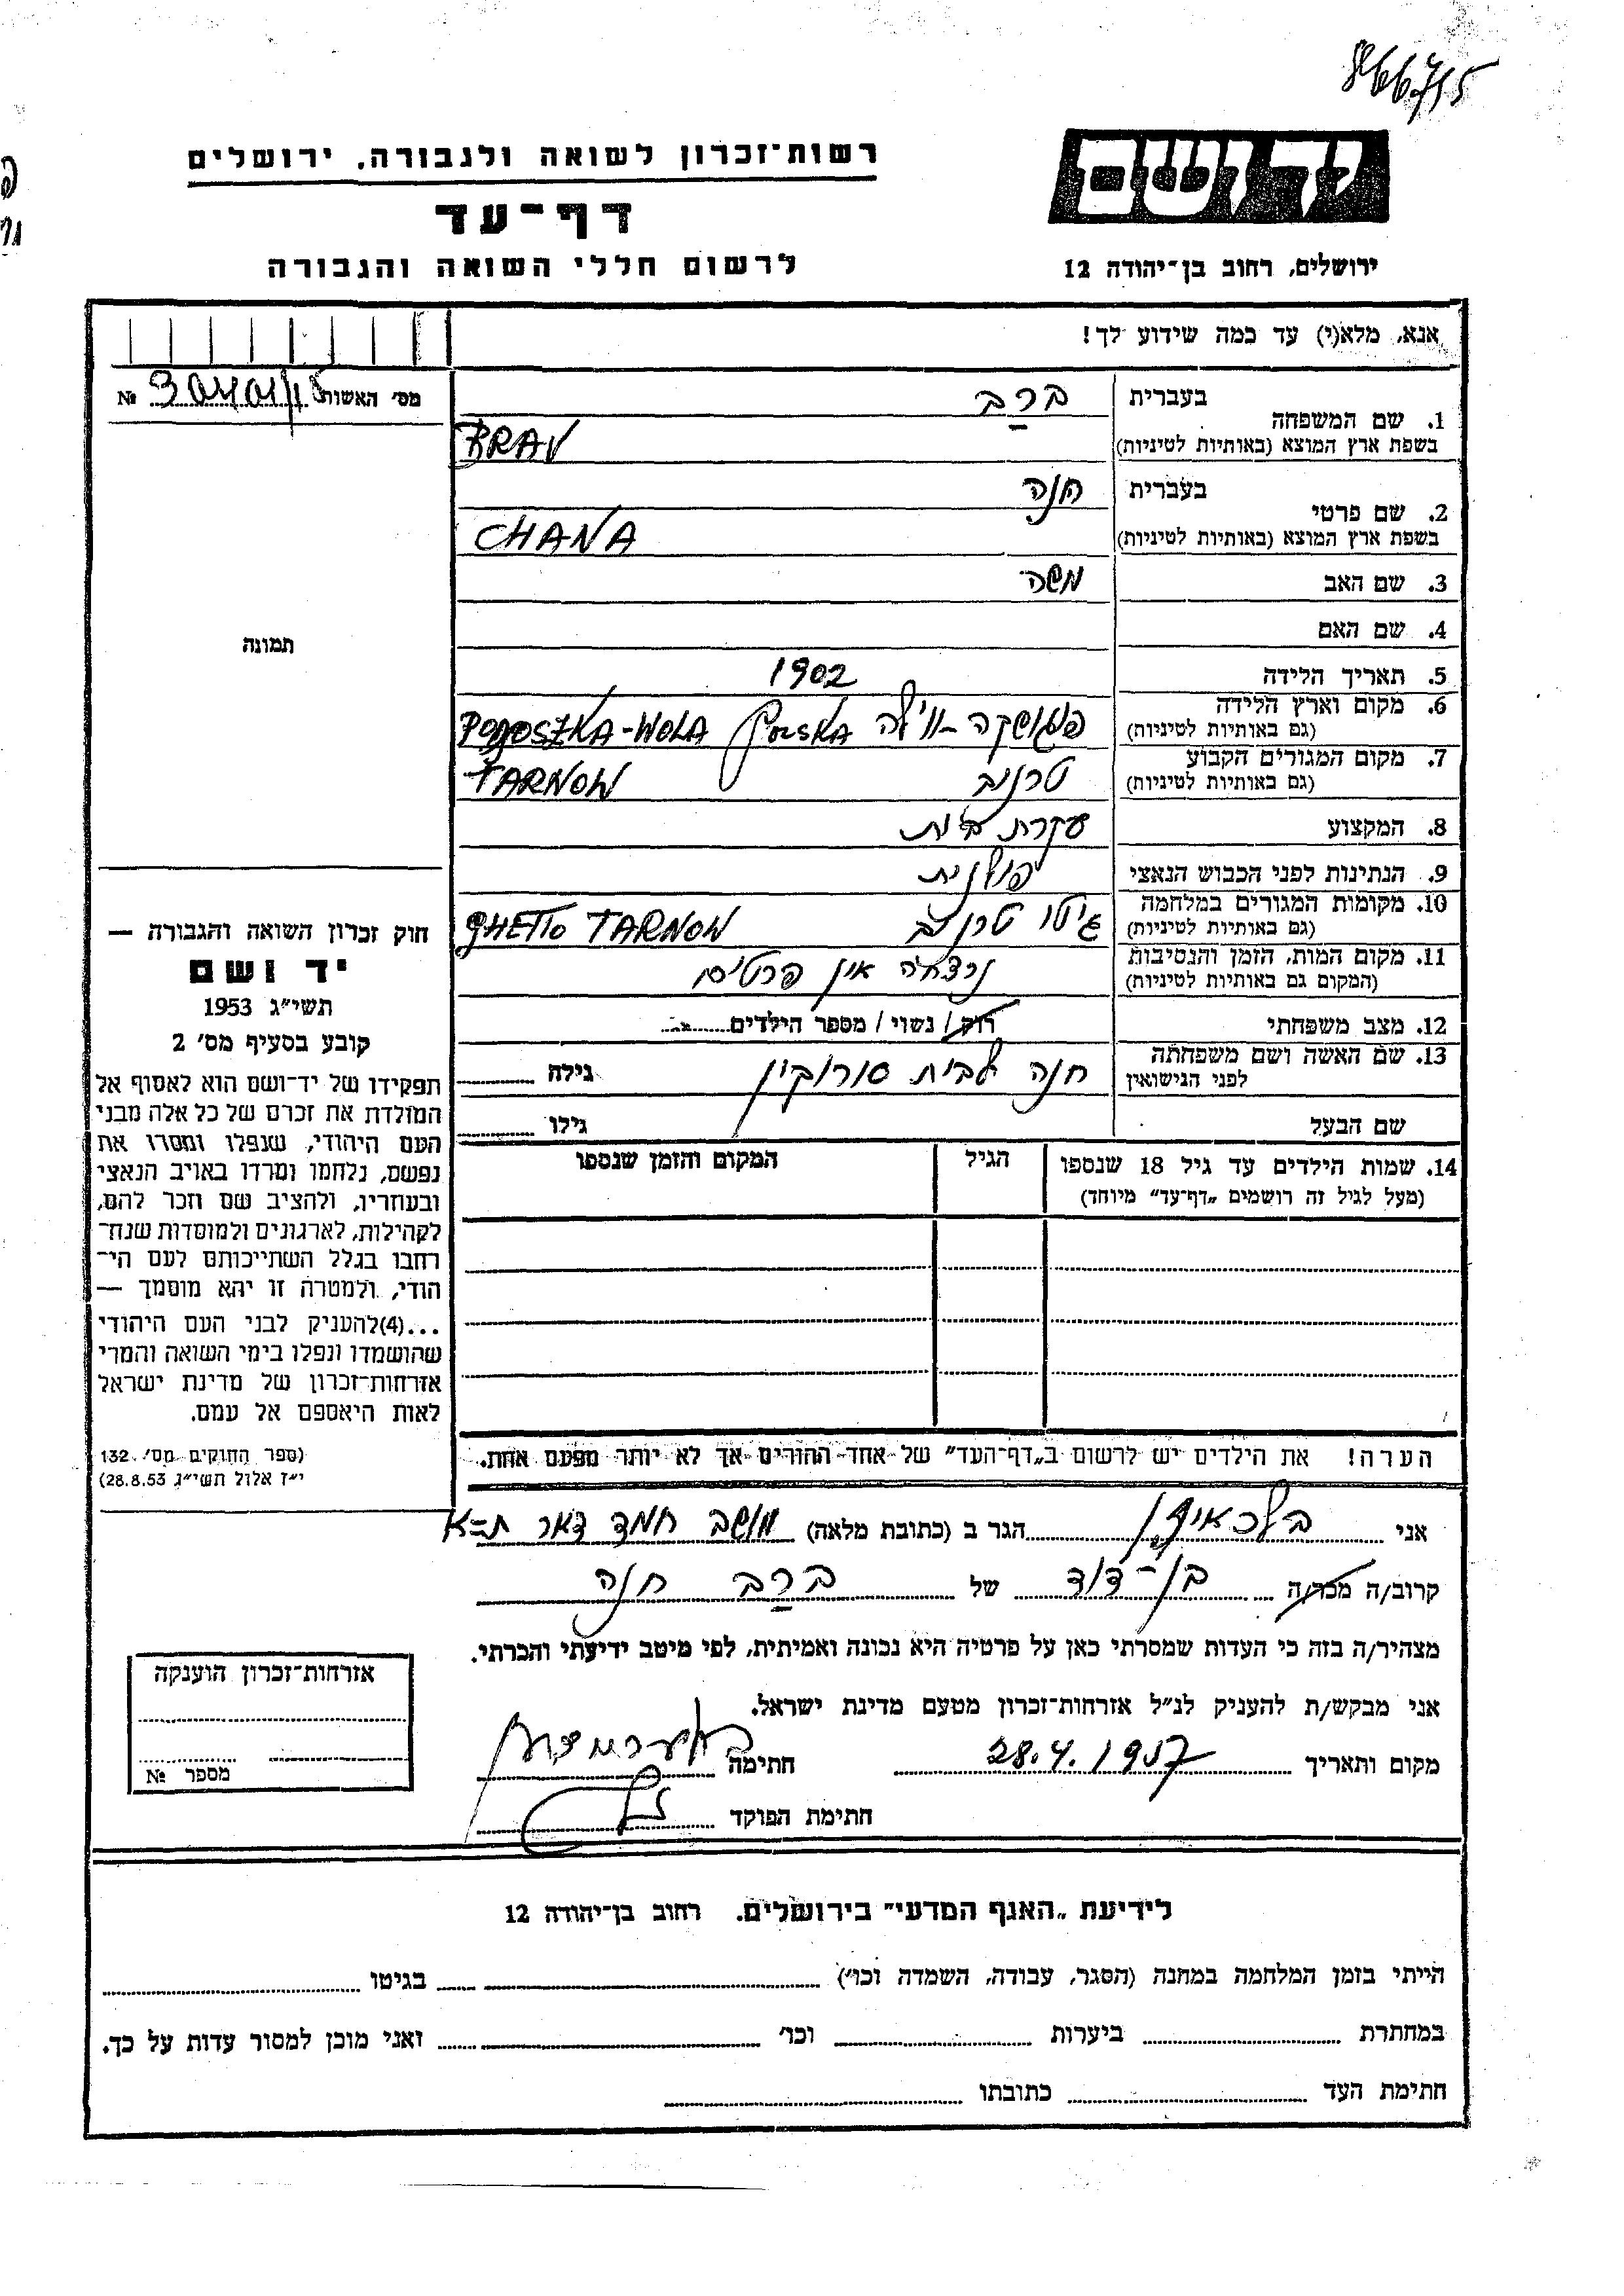 866715
רשות־זכרון לשואה ולגבורה, ירושלים
יד ושם
דף־עד
לרשום חללי השואה והגבורה
ירושלים, רחוב בן־יהודה 12
אנא, מלא(י) עד כמה שידוע לך!
מס׳ האשות №
1. שם המשפחה
בעברית ברב
בשפת ארץ המוצא (באותיות לטיניות) BRAV
2. שם פרטי
בעברית חנה
בשפת ארץ המוצא (באותיות לטיניות) CHANA
3. שם האב משה
4. שם האם
5. תאריך הלידה 1902
6. מקום וארץ הלידה
(גם באותיות לטיניות) POLSKA POGOSZKA-WOLA
7. מקום המגורים הקבוע טרנוב TARNOW
(גם באותיות לטיניות)
8. המקצוע עקרת בית
9. הנתינות לפני הכבוש הנאצי פולנית
10. מקומות המגורים במלחמה גיטו טרנוב GHETTO TARNOW
(גם באותיות לטיניות)
11. מקום המות, הזמן והנסיבות נרצחה אין פרטים
(המקום גם באותיות לטיניות)
12. מצב משפחתי רוק / נשוי / מספר הילדים
13. שם האשה ושם משפחתה
לפני הנישואין חנה לבית סורוקין גילה
שם הבעל גילו
14. שמות הילדים עד גיל 18 שנספו הגיל המקום והזמן שנספו
(מעל לגיל זה רושמים „דף־עד״ מיוחד)
הערה! את הילדים יש לרשום ב„דף־העד״ של אחד ההורים אך לא יותר מפעם אחת.
תמונה
חוק זכרון השואה והגבורה —
יד ושם
תשי״ג 1953
קובע בסעיף מס׳ 2
תפקידו של יד־ושם הוא לאסוף אל
המולדת את זכרם של כל אלה מבני
העם היהודי, שנפלו ומסרו את
נפשם, נלחמו ומרדו באויב הנאצי
ובעוזריו, ולהציב שם וזכר להם,
לקהילות, לארגונים ולמוסדות שנח־
רבו בגלל השתייכותם לעם הי־
הודי, ולמטרה זו יהא מוסמך —
...(4)להעניק לבני העם היהודי
שהושמדו ונפלו בימי השואה והמרי
אזרחות־זכרון של מדינת ישראל
לאות היאספם אל עמם.
(ספר החוקים מס׳ 132.
י״ז אלול תשי״ג 28.8.53)
אני הגר ב (כתובת מלאה) מושב חמד דאר ת־א
קרוב/ה מכר/ה בן־דוד של ברב חנה
מצהיר/ה בזה כי העדות שמסרתי כאן על פרטיה היא נכונה ואמיתית, לפי מיטב ידיעתי והכרתי.
אני מבקש/ת להעניק לנ״ל אזרחות־זכרון מטעם מדינת ישראל.
מקום ותאריך 28.4.1957 חתימה
חתימת הפוקד
אזרחות־זכרון הוענקה
מספר №
לידיעת „האגף המדעי״ בירושלים. רחוב בן־יהודה 12
הייתי בזמן המלחמה במחנה (הסגר, עבודה, השמדה וכו׳) בגיטו
במחתרת ביערות וכו׳ ואני מוכן למסור עדות על כך.
חתימת העד כתובתו